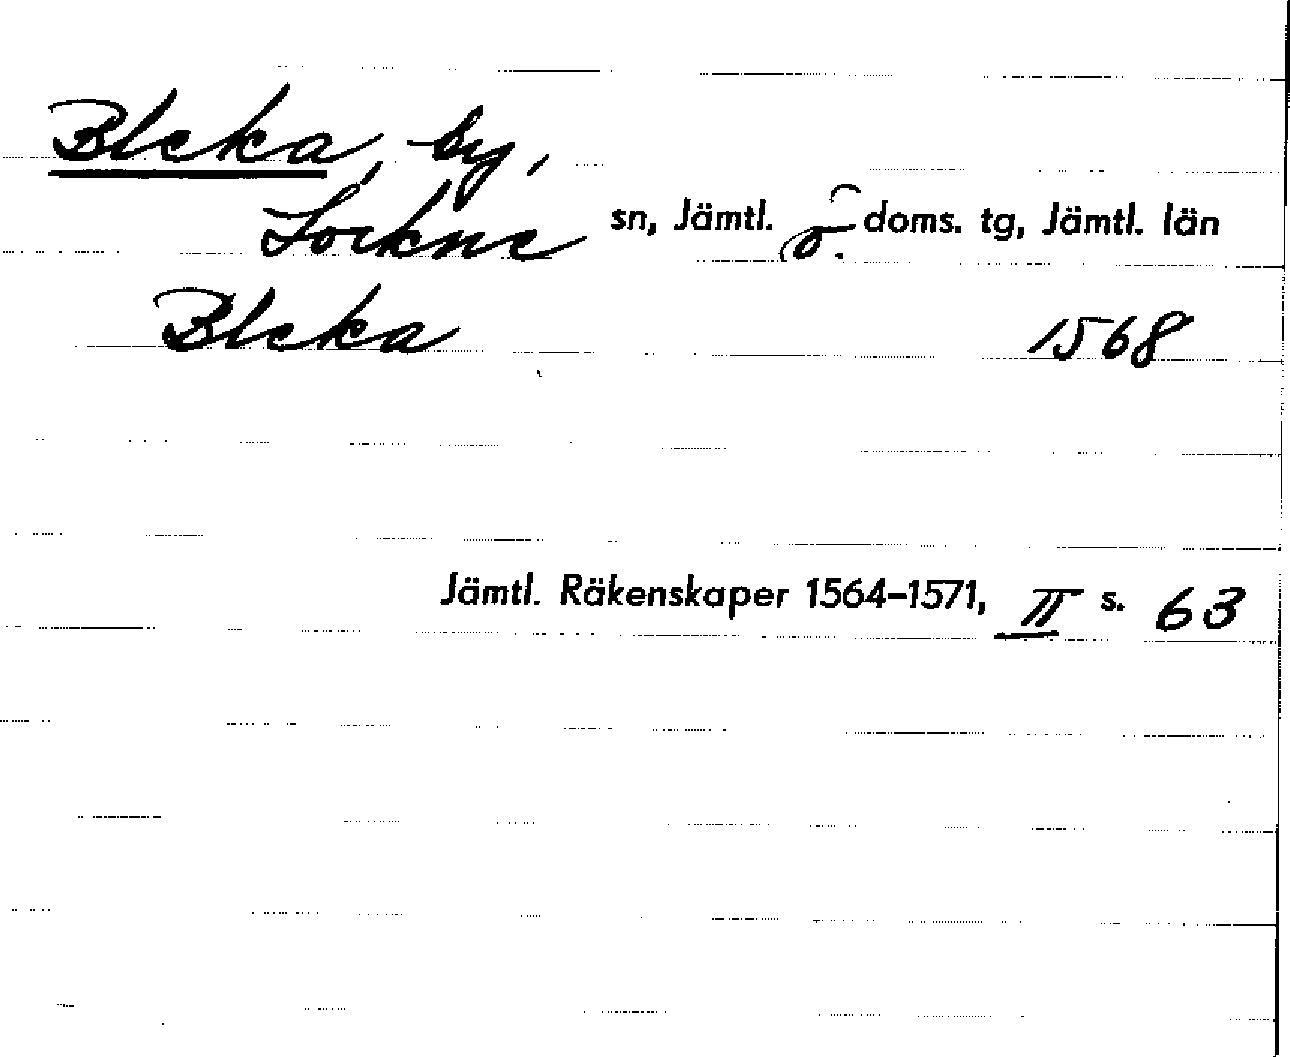 Bleka, by,
Lockne sn, Jämtl. ö. doms. tg, Jämtl. län
Bleka 1568
Jämtl. Räkenskaper 1564–1571, II s. 63